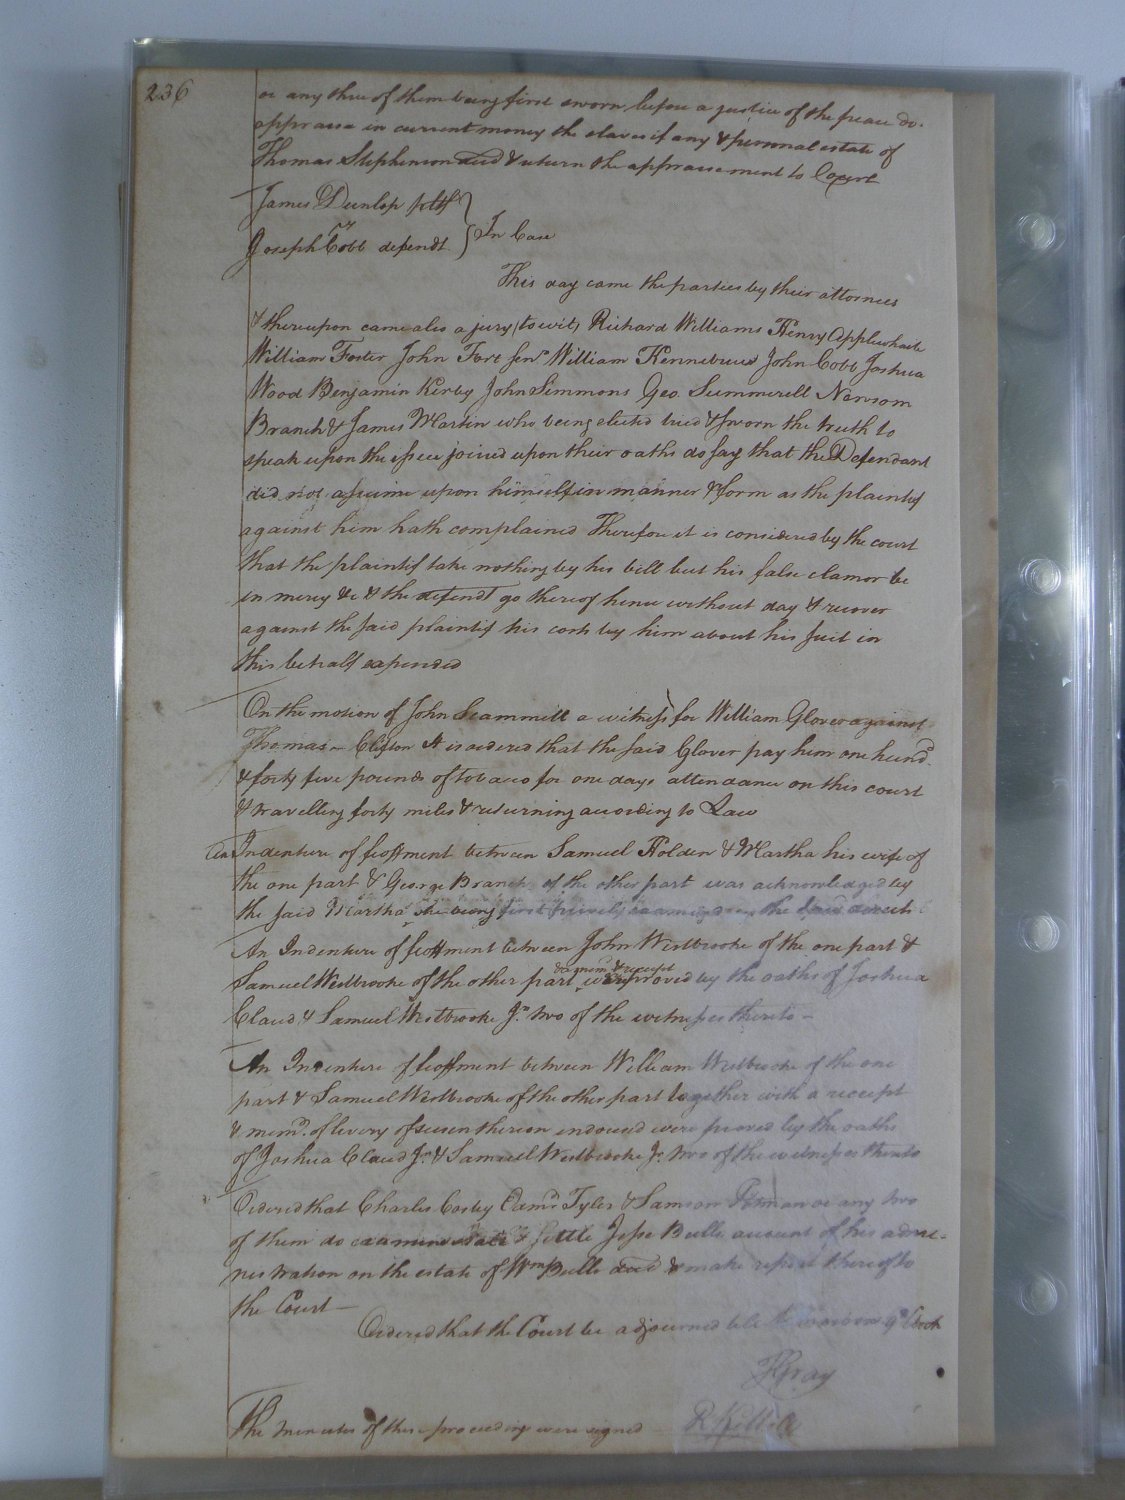 236
or any three of them being first sworn before a justice of the peace do.
appraise in current money the slaves if any & personal estate of
Thomas Stephenson decd & return the appraisement to Court
James Dunlop pltf
vs
Joseph Cobb defendt.
In Case
This day came the parties by their attornies
& thereupon came also a jury (to wit) Richard Williams Henry Applewhaite
William Foster John Fort Senr William Kennebrew John Cobb Joshua
Wood Benjamin Kirby John Simmons Geo. Summerell Newsom
Branch & James Martin who being elected tried & sworn the truth to
speak upon the issue joined upon their oaths do say that the Defendant
did not assume upon himself in manner & form as the plaintif
against him hath complained Therefore it is considered by the court
that the plaintif take nothing by his bill but his false clamor be
in mercy &c & the defendt go thereof hence without day & recover
against the said plaintif his costs by him about his suit in
this behalf expended
On the motion of John Scammell a witness for William Glover against
Thomas Clifton It is ordered that the said Glover pay him one hund.d
& forty five pounds of tobacco for one days attendance on this court
& travelling forty miles & returning according to Law
An Indenture of feoffment between Samuel Holden & Martha his wife of
the one part & George Branch of the other part was acknowledged by
the said Martha she being first privily examined as the law directs
An Indenture of feoffment between John Westbrooke of the one part &
memm & receipt
Samuel Westbrooke of the other part were proved by the oaths of Joshua
Claud & Samuel Westbrooke Jr. two of the witnesses thereto –
An Indenture of feoffment between William Westbrooke of the one
part & Samuel Westbrooke of the other part together with a receipt
& memd. of livery of seisen thereon endorsed were proved by the oaths
of Joshua Claud Jr. & Samuel Westbrooke Jr. two of the witnesses thereto
Ordered that Charles Cosby Edmd Tyler & Samson Pitman or any two
of them do examine state & settle Jesse Bells account of his admi-
nistration on the estate of Wm Bells decd & make report thereof to
the Court —
Ordered that the Court be adjourned till 9 o Clock
The minutes of these proceedings were signed